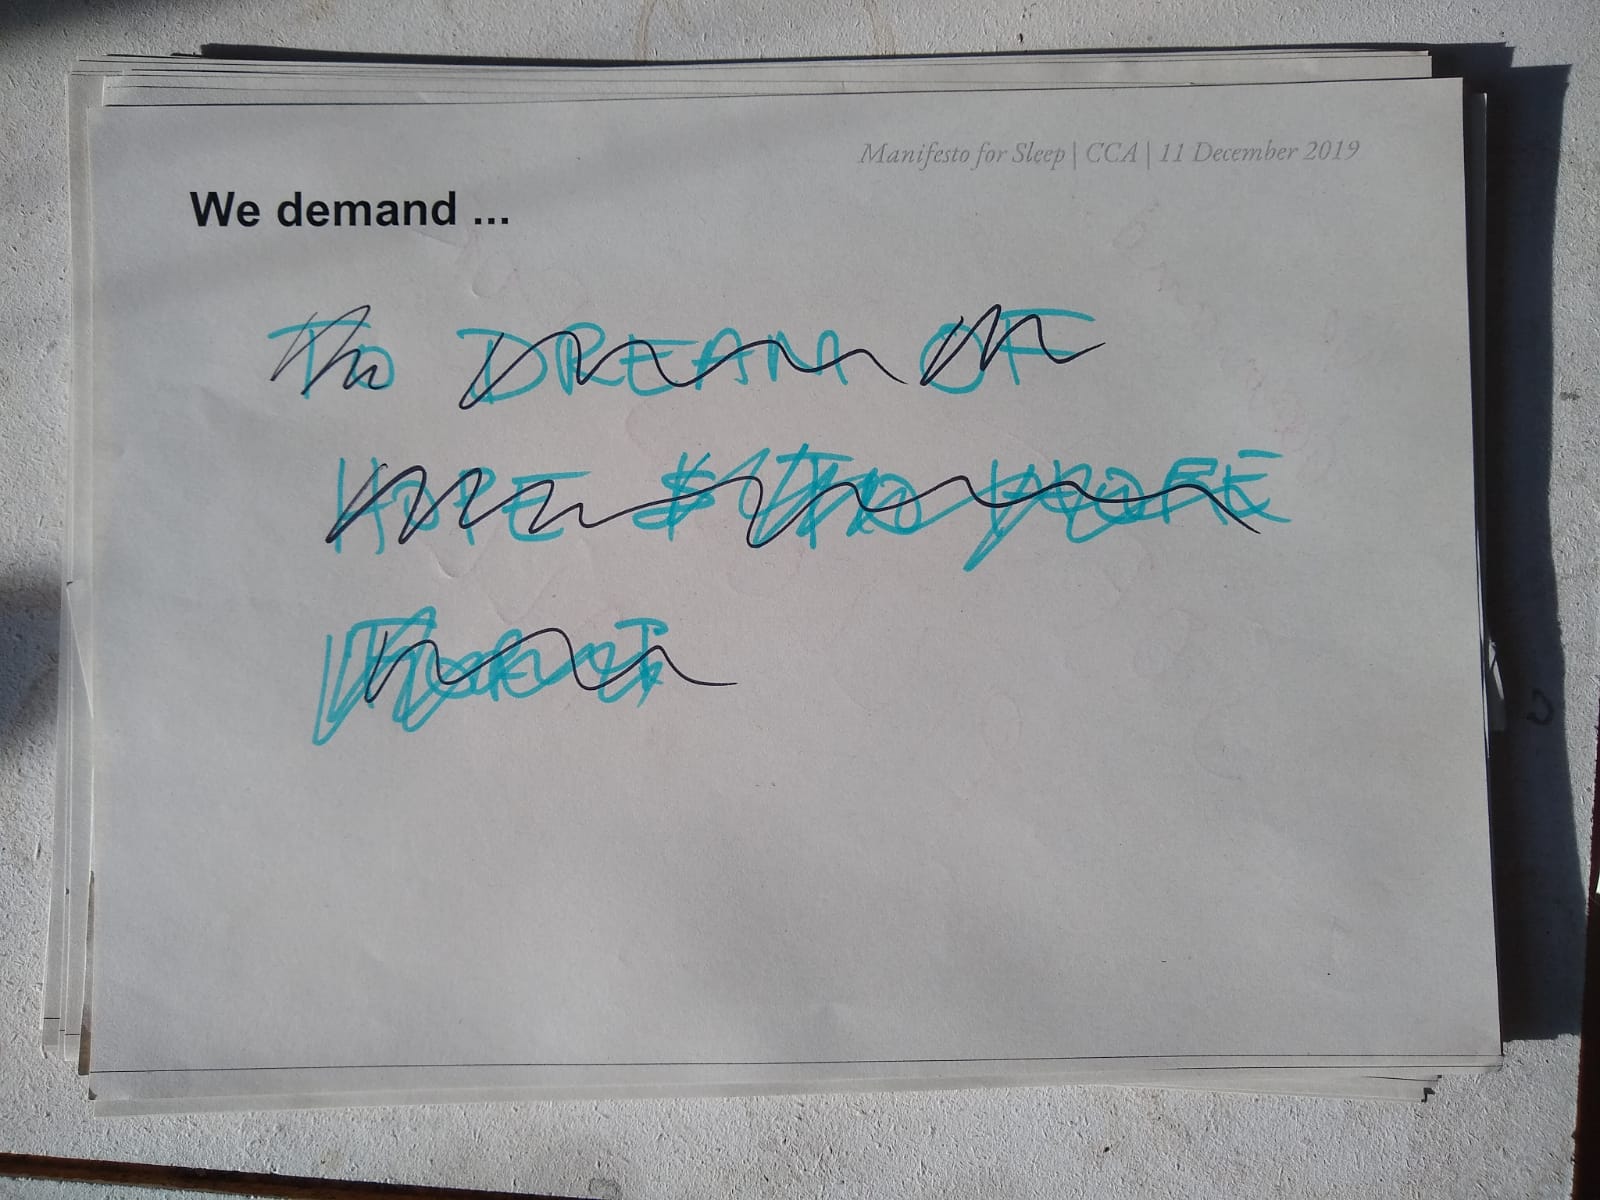 Manifesto for Sleep | CCA | 11 December 2019
We demand ...
TO DREAM OF
HOPE &